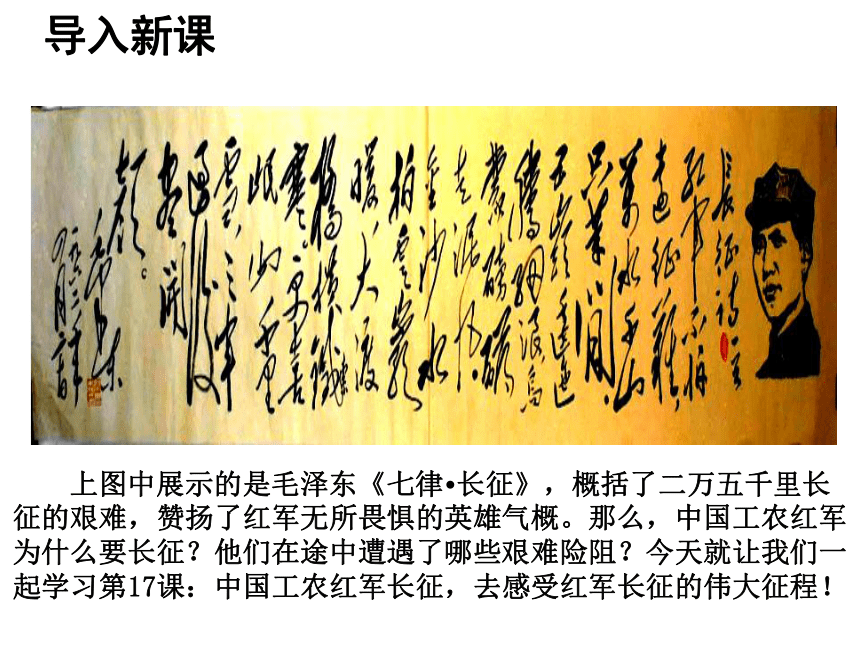 导入新课
长征诗一首
红军不怕
远征难，
万水千山
只等闲。
五岭逶迤
腾细浪，乌
蒙磅礴
走泥丸。
金沙水
拍云崖
暖，大渡
桥横铁索
寒。更喜
岷山千里
雪，三军
过后
尽开
颜。
毛泽东
一九六二年
四月
上图中展示的是毛泽东《七律•长征》，概括了二万五千里长
征的艰难，赞扬了红军无所畏惧的英雄气概。那么，中国工农红军
为什么要长征？他们在途中遭遇了哪些艰难险阻？今天就让我们一
起学习第17课：中国工农红军长征，去感受红军长征的伟大征程！